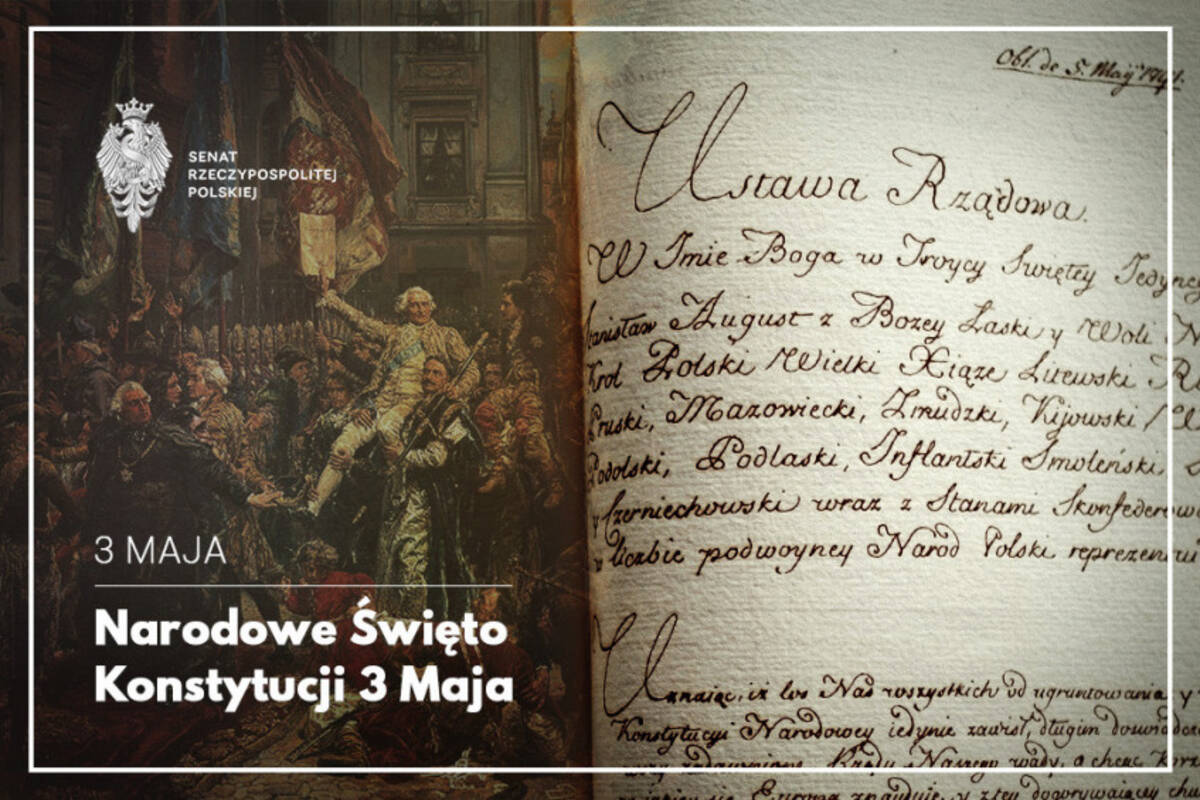 SENAT
RZECZYPOSPOLITEJ
POLSKIEJ
3 MAJA
Narodowe Święto
Konstytucji 3 Maja
Obl. de 5. Maÿ 1791.
Ustawa Rządowa.
W Imie Boga w Troycy Swiętey Jedyney
Stanisław August z Bozey Łaski y Woli N
Krol Polski Wielki Xiąze Litewski R
Pruski, Mazowiecki, Zmudzki, Kijowski, W
Podolski, Podlaski, Inflantski Smoleński, S
y Czerniechowski wraz z Stanami Skonfederowa
w liczbie podwoyney Narod Polski reprezentu
Uznaiąc, iż los Nas wszystkich od ugruntowania y
Konstytucyi Narodowey iedynie zawisł, długim doswiadcze
Rządu Naszego wady, a chcąc korz
Europa znayduie, y z tey dogorywaiącey chw